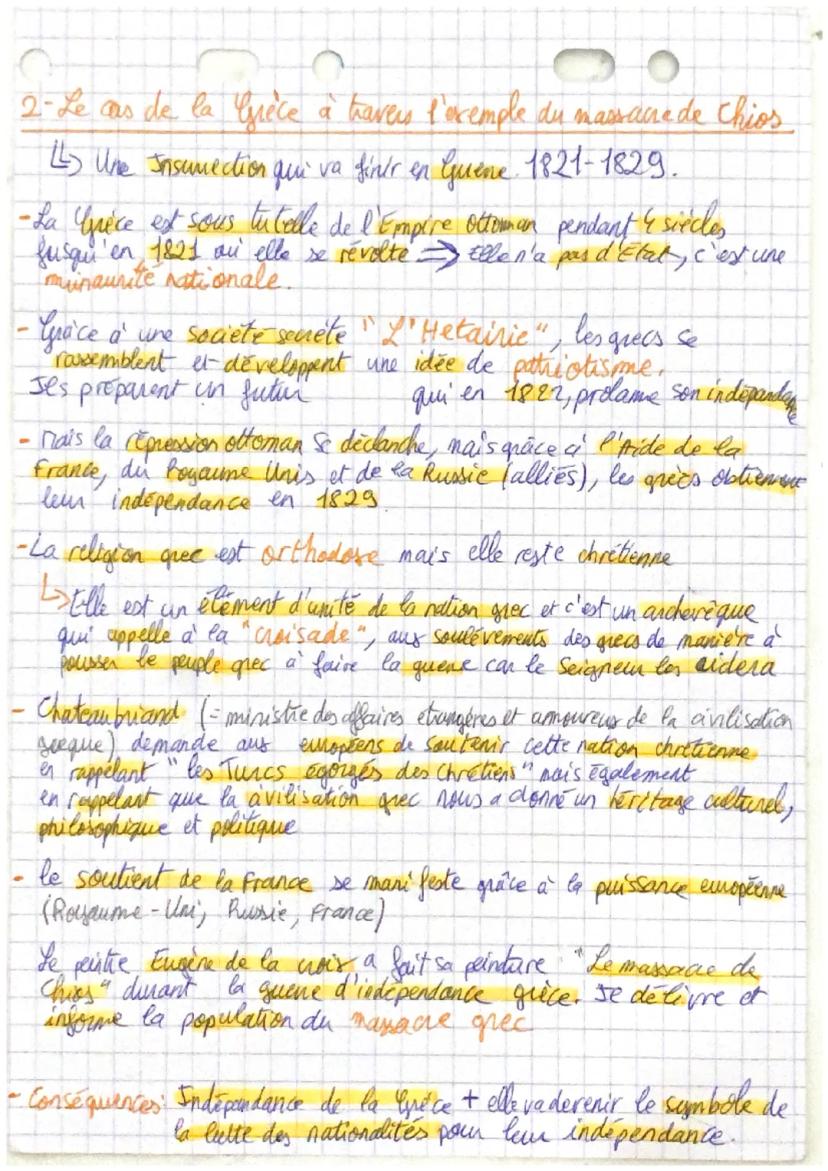 2-Le cas de la Grèce à travers l'exemple du massacre de Chios
↳ Une Insurrection qui va finir en Guerre. 1821-1829.
-La Grèce est sous tutelle de l'Empire ottoman pendant 4 siècles
jusqu'en 1821 où elle se révolte => Elle n'a pas d'Etat, c'est une
munauité nationale.
- Grâce à une société secrète "L'Hetairie", les grecs se
rassemblent et développent une idée de patriotisme.
Ils préparent un futur qui en 1822, prolame son indépendance
- Mais la répression ottoman se déclanche, mais grâce à l'Aide de la
France, du Royaume Unis et de la Russie (alliés), les grècs obtiennent
leur indépendance en 1829
-La religion grec est orthodoxe mais elle reste chrétienne
↳ Elle est un élement d'unité de la nation grec et c'est un archevêque
qui appelle à la "croisade", aux soulévements des grecs de manière à
pousser le peuple grec à faire la guerre car le Seigneur les aidera
- Chateaubriand (= ministre des affaires étrangères et amoureux de la civilisation
grecque) demande aux européens de soutenir cette nation chrétienne
en rappelant "les Turcs égorgés des chrétiens" mais également
en rappelant que la civilisation grec nous a donné un héritage culturel,
philosophique et politique
- le soutient de la France se manifeste grâce à la puissance européenne
(Royaume-Uni, Russie, France)
Le peintre Eugène de la croix a fait sa peinture "Le massacre de
Chios" durant la guerre d'indépendance grèce. Il délivre et
informe la population du massacre grec
- Conséquences: Indépendance de la Grèce + elle va devenir le symbole de
la lutte des nationalités pour leur indépendance.